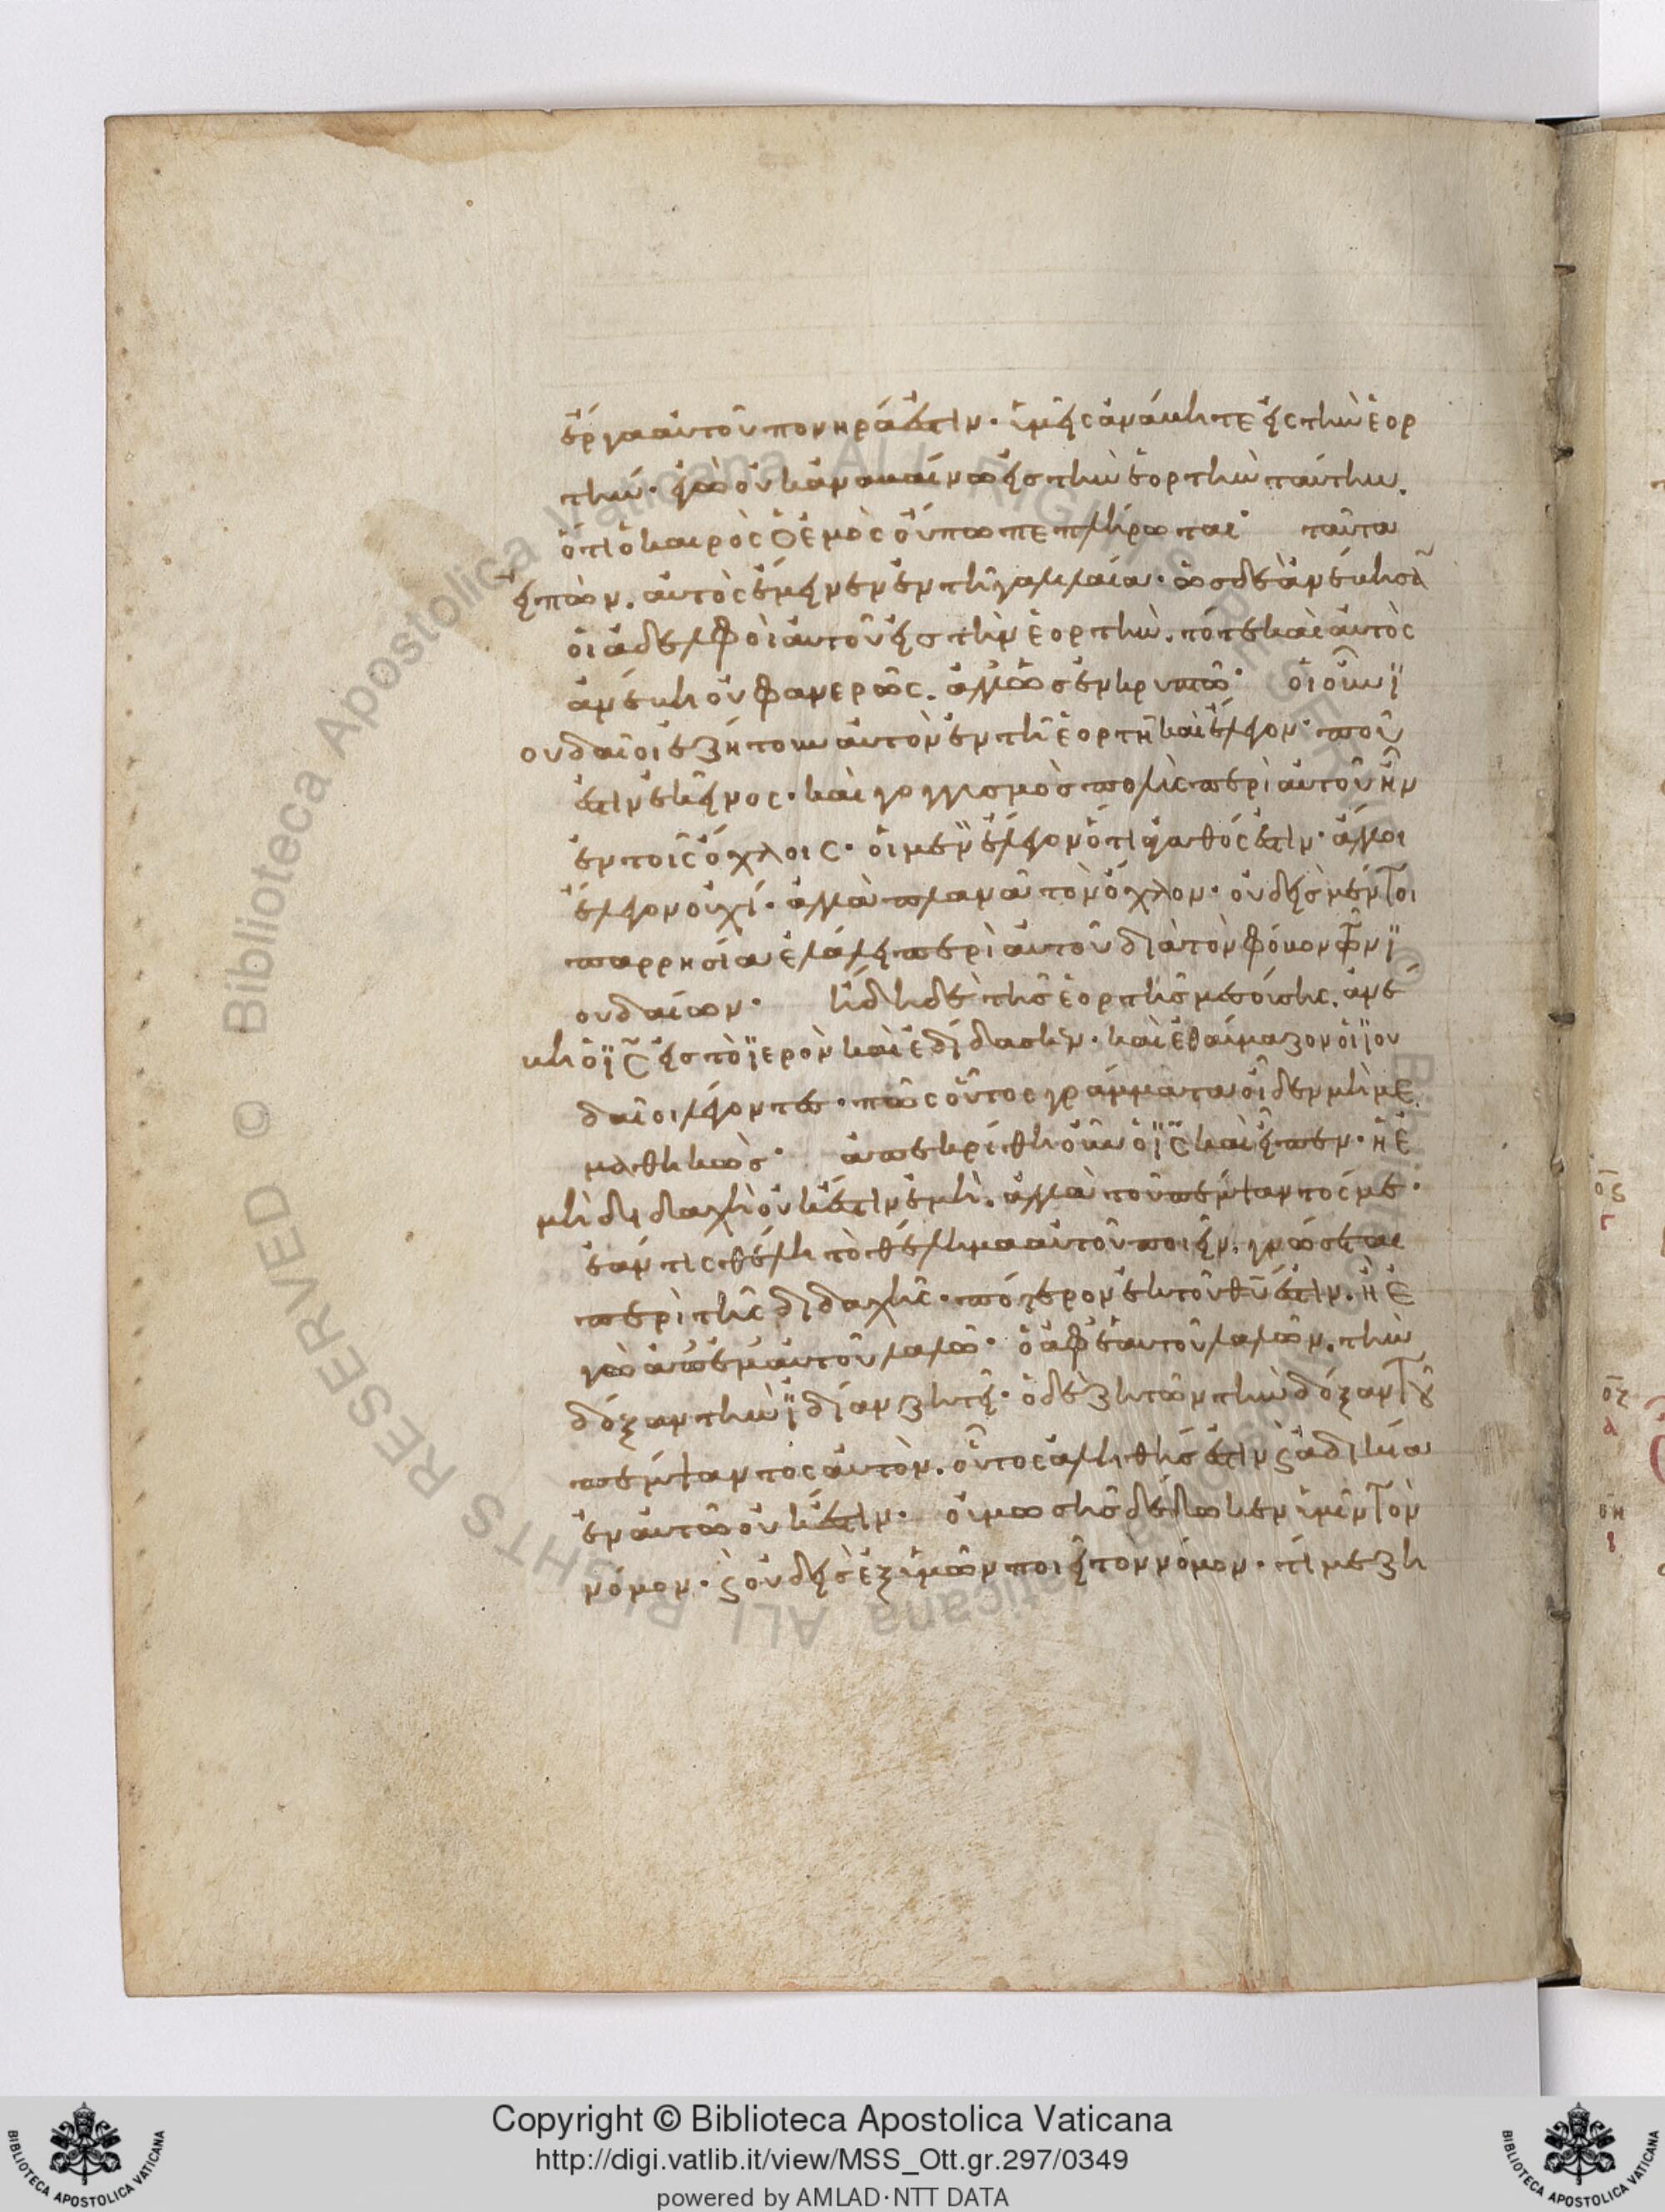 ἔργα αὐτοῦ πονηρά ἐστιν· ὑμεῖς ἀνάβητε εἰς τὴν ἑορ
τήν· ἐγὼ οὐκ ἀναβαίνω εἰς τὴν ἑορτὴν ταύτην.
ὅτι ὁ καιρὸς ὁ ἐμὸς οὔπω πεπλήρωται· ταῦτα
εἰπὼν. αὐτὸς ἔμεινεν ἐν τῇ γαλιλαία· ὡς δὲ ἀνέβησαν
οἱ ἀδελφοὶ αὐτοῦ εἰς τὴν ἑορτὴν. τότε καὶ αὐτὸς
ἀνέβη οὐ φανερῶς. ἀλλ' ὡς ἐν κρυπτῶ· οἱ οὖν ϊ
ουδαῖοι ἐζήτουν αὐτὸν ἐν τῇ ἑορτῇ καὶ ἔλεγον· ποῦ
ἐστιν ἐκεῖνος· καὶ γογγυσμὸς πολὺς περὶ αὐτοῦ ἦν
ἐν τοῖς ὄχλοις· οἱ μὲν ἔλεγον ὅτι ἀγαθός ἐστιν· ἄλλοι
ἔλεγον οὐχί· ἀλλὰ πλανᾶ τὸν ὄχλον· οὐδεὶς μέντοι
παρρησία ἐλάλει περὶ αὐτοῦ διὰ τὸν φόβον τῶν ϊ
ουδαίων· ἤδη δὲ τῆς ἑορτῆς μεσούσης. ἀνέ
βη ὁ ϊς εἰς τὸ ϊερὸν καὶ ἐδίδασκεν· καὶ ἐθαύμαζον οἱ ϊου
δαῖοι λέγοντες· πῶς οὗτος γράμματα οἶδεν μὴ με
μαθηκὼς· ἀπεκρίθη οὖν ὁ ϊς καὶ εἶπεν· ἡ ἐ
μὴ διδαχὴ οὐκ ἔστιν ἐμὴ. ἀλλὰ τοῦ πέμψαντός με·
ἐάν τις θέλη τὸ θέλημα αὐτοῦ ποιεῖν. γνώσεται
περὶ τῆς διδαχῆς· πότερον ἐκ τοῦ θυ ἐστιν. ἢ ἐ
γὼ ἀπ' ἐμαυτοῦ λαλῶ· ὁ ἀφ' ἑαυτοῦ λαλῶν. τὴν
δόξαν τὴν ϊδίαν ζητεῖ· ὁ δὲ ζητῶν τὴν δόξαν τοῦ
πέμψαντος αὐτὸν. οὗτος ἀληθής ἐστιν ϗ ἀδικία
ἐν αὐτῶ οὐκ ἔστιν· οὐ μωσῆς δέδωκεν ὑμῖν τὸν
νόμον· ϗ οὐδεὶς ἐξ ὑμῶν ποιεῖ τὸν νόμον· τί με ζη
Copyright © Biblioteca Apostolica Vaticana
http://digi.vatlib.it/view/MSS_Ott.gr.297/0349
powered by AMLAD·NTT DATA